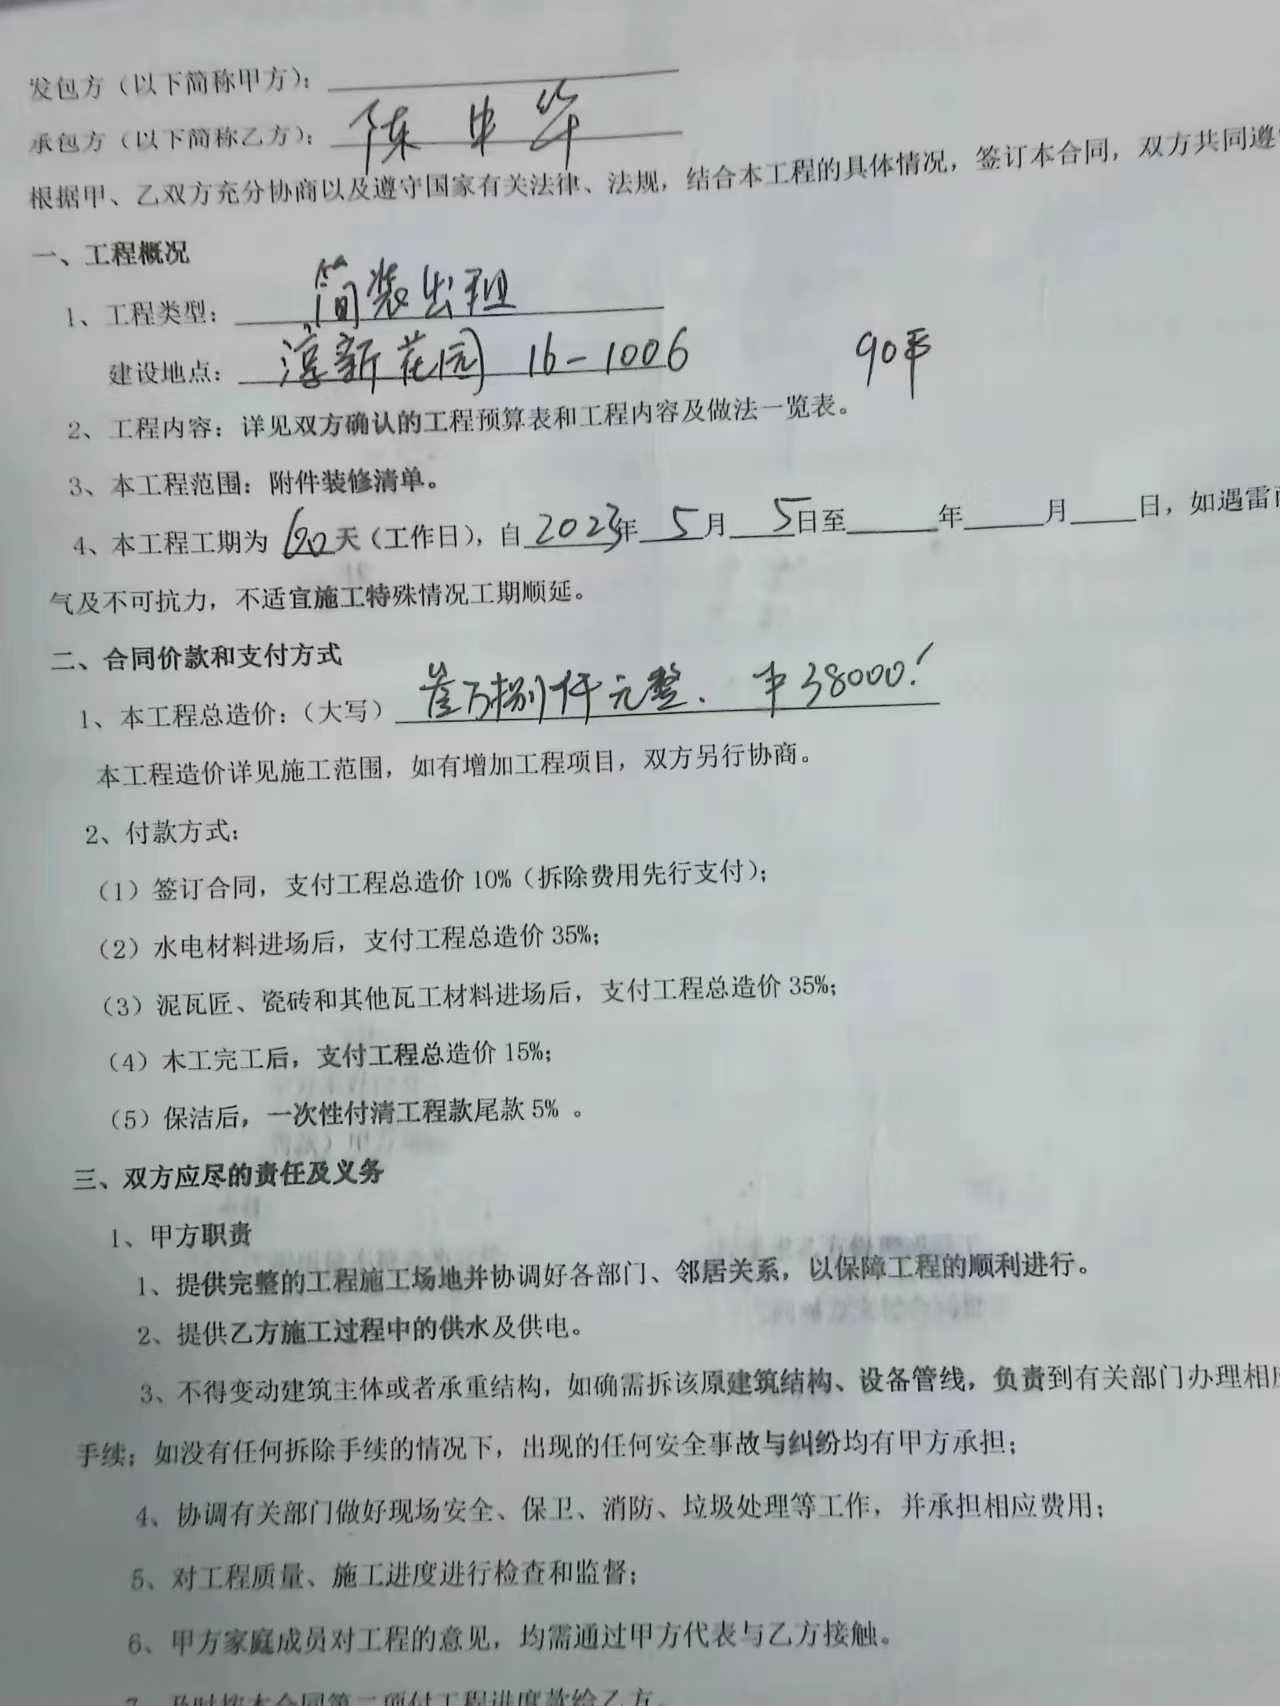 发包方（以下简称甲方）：
承包方（以下简称乙方）： 陈中华
根据甲、乙双方充分协商以及遵守国家有关法律、法规，结合本工程的具体情况，签订本合同，双方共同遵
一、工程概况
1、工程类型： 简装出租
建设地点： 淳新花园 16-1006 90平
2、工程内容：详见双方确认的工程预算表和工程内容及做法一览表。
3、本工程范围：附件装修清单。
4、本工程工期为 60天（工作日），自 2023年 5月 5日至 年 月 日，如遇雷
气及不可抗力，不适宜施工特殊情况工期顺延。
二、合同价款和支付方式
1、本工程总造价：（大写） 万捌仟元整. 38000!
本工程造价详见施工范围，如有增加工程项目，双方另行协商。
2、付款方式：
（1）签订合同，支付工程总造价 10%（拆除费用先行支付）；
（2）水电材料进场后，支付工程总造价 35%；
（3）泥瓦匠、瓷砖和其他瓦工材料进场后，支付工程总造价 35%；
（4）木工完工后，支付工程总造价 15%；
（5）保洁后，一次性付清工程款尾款 5% 。
三、双方应尽的责任及义务
1、甲方职责
1、提供完整的工程施工场地并协调好各部门、邻居关系，以保障工程的顺利进行。
2、提供乙方施工过程中的供水及供电。
3、不得变动建筑主体或者承重结构，如确需拆该原建筑结构、设备管线，负责到有关部门办理相
手续；如没有任何拆除手续的情况下，出现的任何安全事故与纠纷均有甲方承担；
4、协调有关部门做好现场安全、保卫、消防、垃圾处理等工作，并承担相应费用；
5、对工程质量、施工进度进行检查和监督；
6、甲方家庭成员对工程的意见，均需通过甲方代表与乙方接触。
7、及时按本合同第二项付工程进度款给乙方。